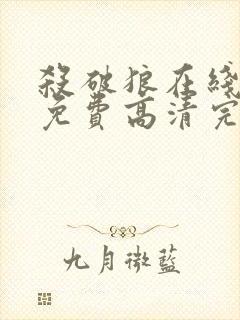 殺破狼在綫
免費高清完
九月微藍